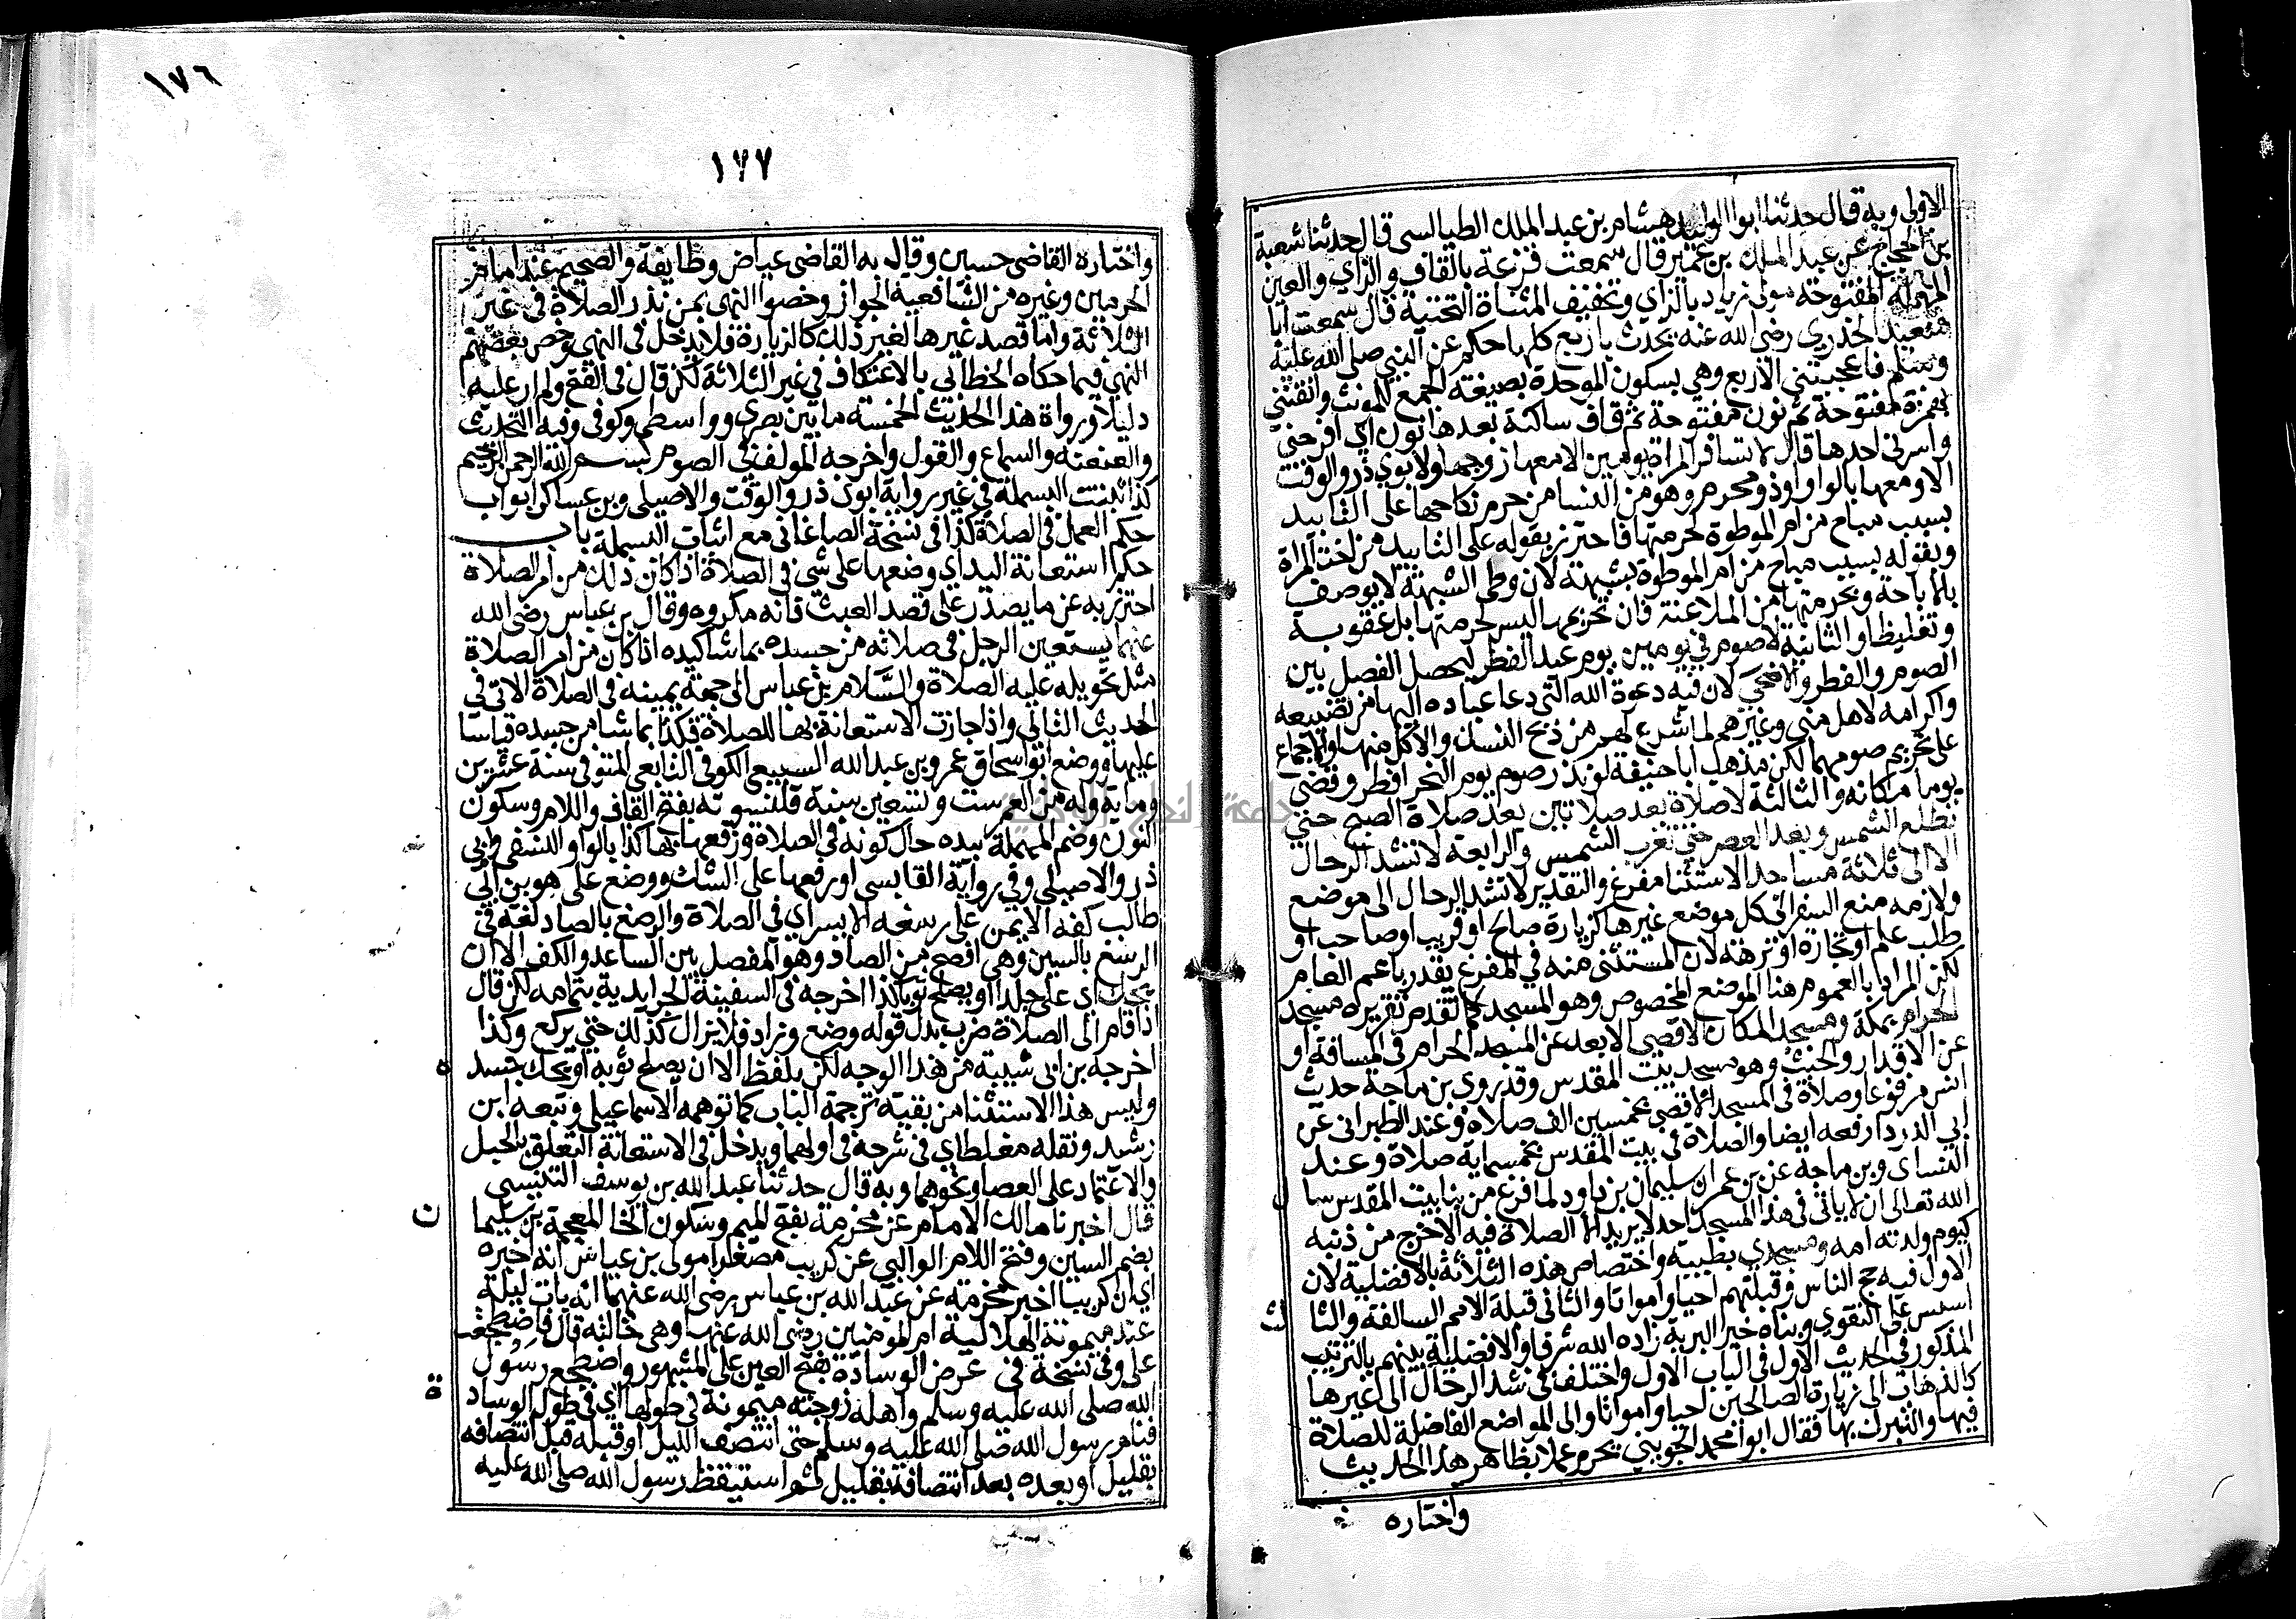 الاولى وبه قال حدثنا ابو الوليد هشام بن عبد الملك الطيالسى قال حدثنا شعبة
بن الحجاج عن عبد الملك بن عمير قال سمعت قزعة بالقاف والزاي والعين
المهملة المفتوحة مولى زياد بالزاي وتخفيف المثناة التحتية قال سمعت ابا
سعيد الخدري رضى الله عنه يحدث باربع كلها حكم عن النبي صلى الله عليه
وسلم فاعجبنني الاربع وهي بسكون الموحدة بصيغة الجمع المونث وانقنني
بهمزة مفتوحة ثم نون مفتوحة ثم قاف ساكنة بعدها نون اي افرحني
واسرني احدها قال لا تسافر المراة يومين الا معها زوجها ولابوي ذر والوقت
الا ومعها بالواو او ذو محرم وهو من النسا من حرم نكاحها على التابيد
بسبب مباح من ام الموطوة لحرمتها فاحترز بقوله على التابيد من اخت المراة
وبقوله بسبب مباح من ام الموطوة بشبهة لان وطى الشبهة لا يوصف
بالاباحة وبحرمتها من الملاعنة فان تحريمها ليس لحرمتها بل عقوبة
وتغليظا والثانية لا صوم في يومين يوم عيد الفطر ليحصل الفصل بين
الصوم والفطر والاضحى لان فيه دعوة الله التى دعا عباده اليها من تضييفه
واكرامه لاهل منى وغيرهم لما شرع لهم من ذبح النسك والاكل منها والاجماع
على تحريم صومهما لكن مذهب ابا حنيفة لو نذر صوم يوم النحر افطر وقضى
يوما مكانه والثالثة لا صلاة بعد صلاتين بعد صلاة الصبح حتى
تطلع الشمس وبعد العصر حتى تغرب الشمس والرابعة لا تشد الرحال
الا الى ثلاثة مساجد الاستثنا مفرغ والتقدير لا تشد الرحال الى موضع
ولازمه منع السفر الى كل موضع غيرها كزيارة صالح او قريب او صاحب او
طلب علم او تجارة او نزهة لان المستثنى منه في المفرغ يقدر باعم العام
لكن المراد بالعموم هنا الموضع المخصوص وهو المسجد كما تقدم تقريره مسجد
الحرام بمكة ومسجد المكان الاقصى الابعد عن المسجد الحرام في المسافة او
عن الاقذار والخبث وهو مسجد بيت المقدس وقد روى بن ماجة حديث
انس مرفوعا وصلاة في المسجد الاقصى بخمسين الف صلاة وعند الطبرانى عن
ابي الدردا رفعه ايضا والصلاة في بيت المقدس بخمسماية صلاة وعند
النساى وبن ماجة عن بن عمر ان سليمان بن داود لما فرغ من بنا بيت المقدس سا ل
الله تعالى ان لا ياتى في هذا المسجد احد لا يريد الا الصلاة فيه الا خرج من ذنبه
كيوم ولدته امه ومسجدي بطيبة واختصاص هذه الثلاثة بالافضلية لان
الاول فيه حج الناس وقبلتهم احيا وامواتا والثانى قبلة الامم السالفة والثا لث
اسس على التقوي وبناه خير البرية زاده الله شرفا والافضلية بينهم بالترتيب
المذكور في الحديث الاول في الباب الاول واختلف في شد الرحال الى غيرها
كالذهاب الى زيارة الصالحين احيا وامواتا والى المواضع الفاضلة للصلاة
فيها والتبرك بها فقال ابو محمد الجويني يحرم عملا بظاهر هذا الحديث
واختاره
١٧٦
١٧٧
واختاره القاضى حسين وقال به القاضى عياض وطايفة والصحيح عند امام
الحرمين وغيره من الشافعية الجواز وخصوا النهى بمن نذر الصلاة في غير
الثلاثة واما قصد غيرها لغير ذلك كالزيارة فلا يدخل في النهى وخص بعضهم
النهي فيما حكاه الخطابى بالاعتكاف في غير الثلاثة لكن قال في الفتح ولم ار عليه
دليلا ورواة هذا الحديث الخمسة ما بين بصري وواسطى وكوفى وفيه التحديث
والعنعنة والسماع والقول واخرجه المولف في الصوم بسم الله الرحمن الرحيم
كذا ثبتت البسملة في غير رواية ابوي ذر والوقت والاصيلى وبن عساكر ابواب
حكم العمل في الصلاة كذا في نسخة الصاغانى مع اثبات البسملة باب
حكم استعانة اليد اي وضعها على شى في الصلاة اذا كان ذلك من امر الصلاة
احترز به عن ما يصدر على قصد العبث فانه مكروه وقال بن عباس رضى الله
عنهما يستعين الرجل في صلاته من جسده بما شا كيده اذا كان من امر الصلاة
مثل تحويله عليه الصلاة والسلام بن عباس الى جهة يمينه في الصلاة الاتى في
الحديث الثانى واذا جازت الاستعانة بها للصلاة فكذا بما شا من جسده قياسا
عليها ووضع ابو اسحاق عمرو بن عبد الله السبيعى الكوفى التابعى المتوفى سنة عشرين
وماية وله من العمر ست وتسعين سنة قلنسوته بفتح القاف واللام وسكون
النون وضم المهملة بيده حال كونه في الصلاة ورفعها بها كذا بالواو للنسفى وابى
ذر والاصيلى وفي رواية القابسى او رفعها على الشك ووضع على هو بن ابى
طالب كفه الايمن على رسغه الايسر اي في الصلاة والرصغ بالصاد لغة في
الرسغ بالسين وهى افصح من الصاد وهو المفصل بين الساعد والكف الا ان
يحك اي على جلدا او يصلح ثوبا كذا اخرجه في السفينة الجرايدية بتمامه لكن قال
اذا قام الى الصلاة ضرب بدل قوله وضع وزاد فلا يزال كذلك حتى يركع وكذا
اخرجه بن ابى شيبة من هذا الوجه لكن بلفظ الا ان يصلح ثوبه او يحك جسد ه
وليس هذا الاستثنا من بقية ترجمة الباب كما توهمه الاسماعيلى وتبعه ابن
رشد ونقله مغلطاي في شرحه في اولهما ويدخل في الاستعانة التعلق بالحبل
والاعتماد على العصا ونحوهما وبه قال حدثنا عبد الله بن يوسف التنيسى
قال اخبرنا مالك الامام عن مخرمة بفتح الميم وسكون الخا المعجمة بن سليما ن
بضم السين وفتح اللام الوالبي عن كريب مصغرا مولى بن عباس انه اخبره
اي ان كريبا اخبر مخرمة عن عبد الله بن عباس رضى الله عنهما انه بات ليلة
عند ميمونة الهلالية ام المومنين رضى الله عنها وهى خالته قال فاضطجعت
على وفى نسخة في عرض الوسادة بفتح العين على المشهور واضطجع رسول
الله صلى الله عليه وسلم واهله زوجته ميمونة في طولها اي في طول الوساد ة
فنام رسول الله صلى الله عليه وسلم حتى انتصف الليل او قبله قبل انتصافه
بقليل او بعده بعد انتصافه بقليل ثم استيقظ رسول الله صلى الله عليه